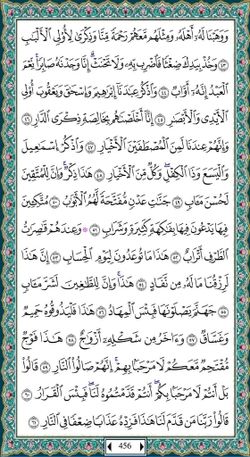 وَوَهَبْنَا لَهُۥٓ أَهْلَهُۥ وَمِثْلَهُم مَّعَهُمْ رَحْمَةً مِّنَّا وَذِكْرَىٰ لِأُو۟لِى ٱلْأَلْبَٰبِ
٤٣ وَخُذْ بِيَدِكَ ضِغْثًا فَٱضْرِب بِّهِۦ وَلَا تَحْنَثْ ۗ إِنَّا وَجَدْنَٰهُ صَابِرًا ۚ نِّعْمَ
ٱلْعَبْدُ ۖ إِنَّهُۥٓ أَوَّابٌ ٤٤ وَٱذْكُرْ عِبَٰدَنَآ إِبْرَٰهِيمَ وَإِسْحَٰقَ وَيَعْقُوبَ أُو۟لِى
ٱلْأَيْدِى وَٱلْأَبْصَٰرِ ٤٥ إِنَّآ أَخْلَصْنَٰهُم بِخَالِصَةٍ ذِكْرَى ٱلدَّارِ ٤٦
وَإِنَّهُمْ عِندَنَا لَمِنَ ٱلْمُصْطَفَيْنَ ٱلْأَخْيَارِ ٤٧ وَٱذْكُرْ إِسْمَٰعِيلَ
وَٱلْيَسَعَ وَذَا ٱلْكِفْلِ ۖ وَكُلٌّ مِّنَ ٱلْأَخْيَارِ ٤٨ هَٰذَا ذِكْرٌ ۚ وَإِنَّ لِلْمُتَّقِينَ
لَحُسْنَ مَـَٔابٍ ٤٩ جَنَّٰتِ عَدْنٍ مُّفَتَّحَةً لَّهُمُ ٱلْأَبْوَٰبُ ٥٠ مُتَّكِـِٔينَ
فِيهَا يَدْعُونَ فِيهَا بِفَٰكِهَةٍ كَثِيرَةٍ وَشَرَابٍ ٥١ وَعِندَهُمْ قَٰصِرَٰتُ
ٱلطَّرْفِ أَتْرَابٌ ٥٢ هَٰذَا مَا تُوعَدُونَ لِيَوْمِ ٱلْحِسَابِ ٥٣ إِنَّ هَٰذَا
لَرِزْقُنَا مَا لَهُۥ مِن نَّفَادٍ ٥٤ هَٰذَا ۚ وَإِنَّ لِلطَّٰغِينَ لَشَرَّ مَـَٔابٍ
٥٥ جَهَنَّمَ يَصْلَوْنَهَا فَبِئْسَ ٱلْمِهَادُ ٥٦ هَٰذَا فَلْيَذُوقُوهُ حَمِيمٌ
وَغَسَّاقٌ ٥٧ وَءَاخَرُ مِن شَكْلِهِۦٓ أَزْوَٰجٌ ٥٨ هَٰذَا فَوْجٌ
مُّقْتَحِمٌ مَّعَكُمْ ۖ لَا مَرْحَبًۢا بِهِمْ ۚ إِنَّهُمْ صَالُوا۟ ٱلنَّارِ ٥٩ قَالُوا۟
بَلْ أَنتُمْ لَا مَرْحَبًۢا بِكُمْ ۖ أَنتُمْ قَدَّمْتُمُوهُ لَنَا ۖ فَبِئْسَ ٱلْقَرَارُ
٦٠ قَالُوا۟ رَبَّنَا مَن قَدَّمَ لَنَا هَٰذَا فَزِدْهُ عَذَابًا ضِعْفًا فِى ٱلنَّارِ ٦١
456